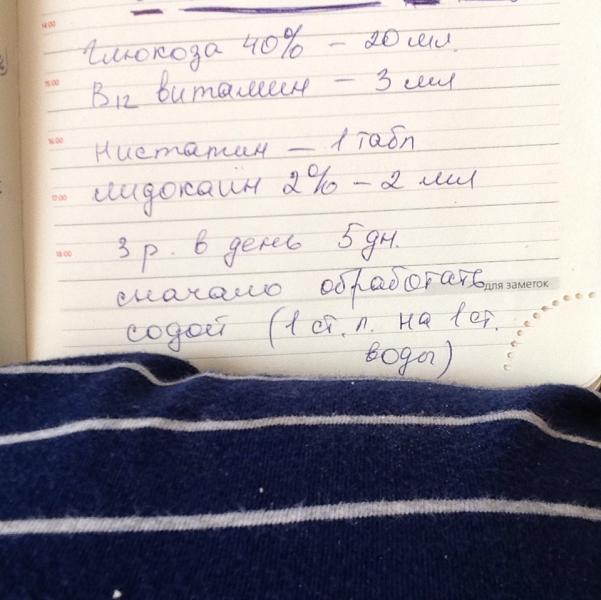 14:00
Глюкоза 40% – 20 мл.
15:00
B12 витамин – 3 мл
16:00
Нистатин – 1 табл
17:00
лидокаин 2% – 2 мл
18:00
3 р. в день 5 дн.
сначало обработать
для заметок
содой (1 ст. л. на 1 ст.
воды)